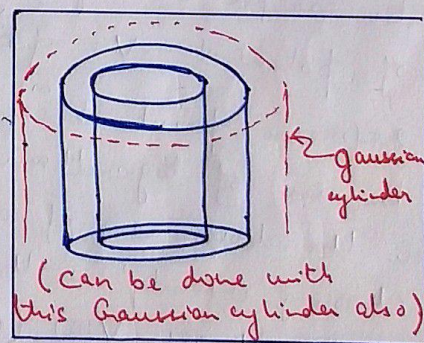 Gaussian
cylinder
(can be done with
this Gaussian cylinder also)